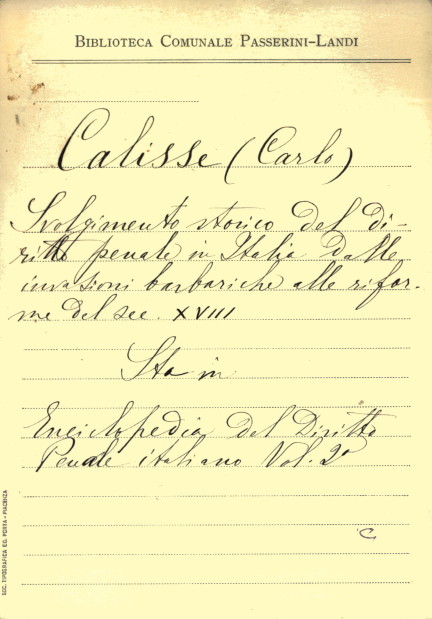 BIBLIOTECA COMUNALE PASSERINI-LANDI
Calisse (Carlo)
Svolgimento storico del di-
ritto penale in Italia dalle
invasioni barbariche alle rifor-
me del sec. XVIII
Sta in
Enciclopedia del Diritto
Penale italiano Vol. 2º
C
SOC. TIPOGRAFICA EG. PORTA - PIACENZA